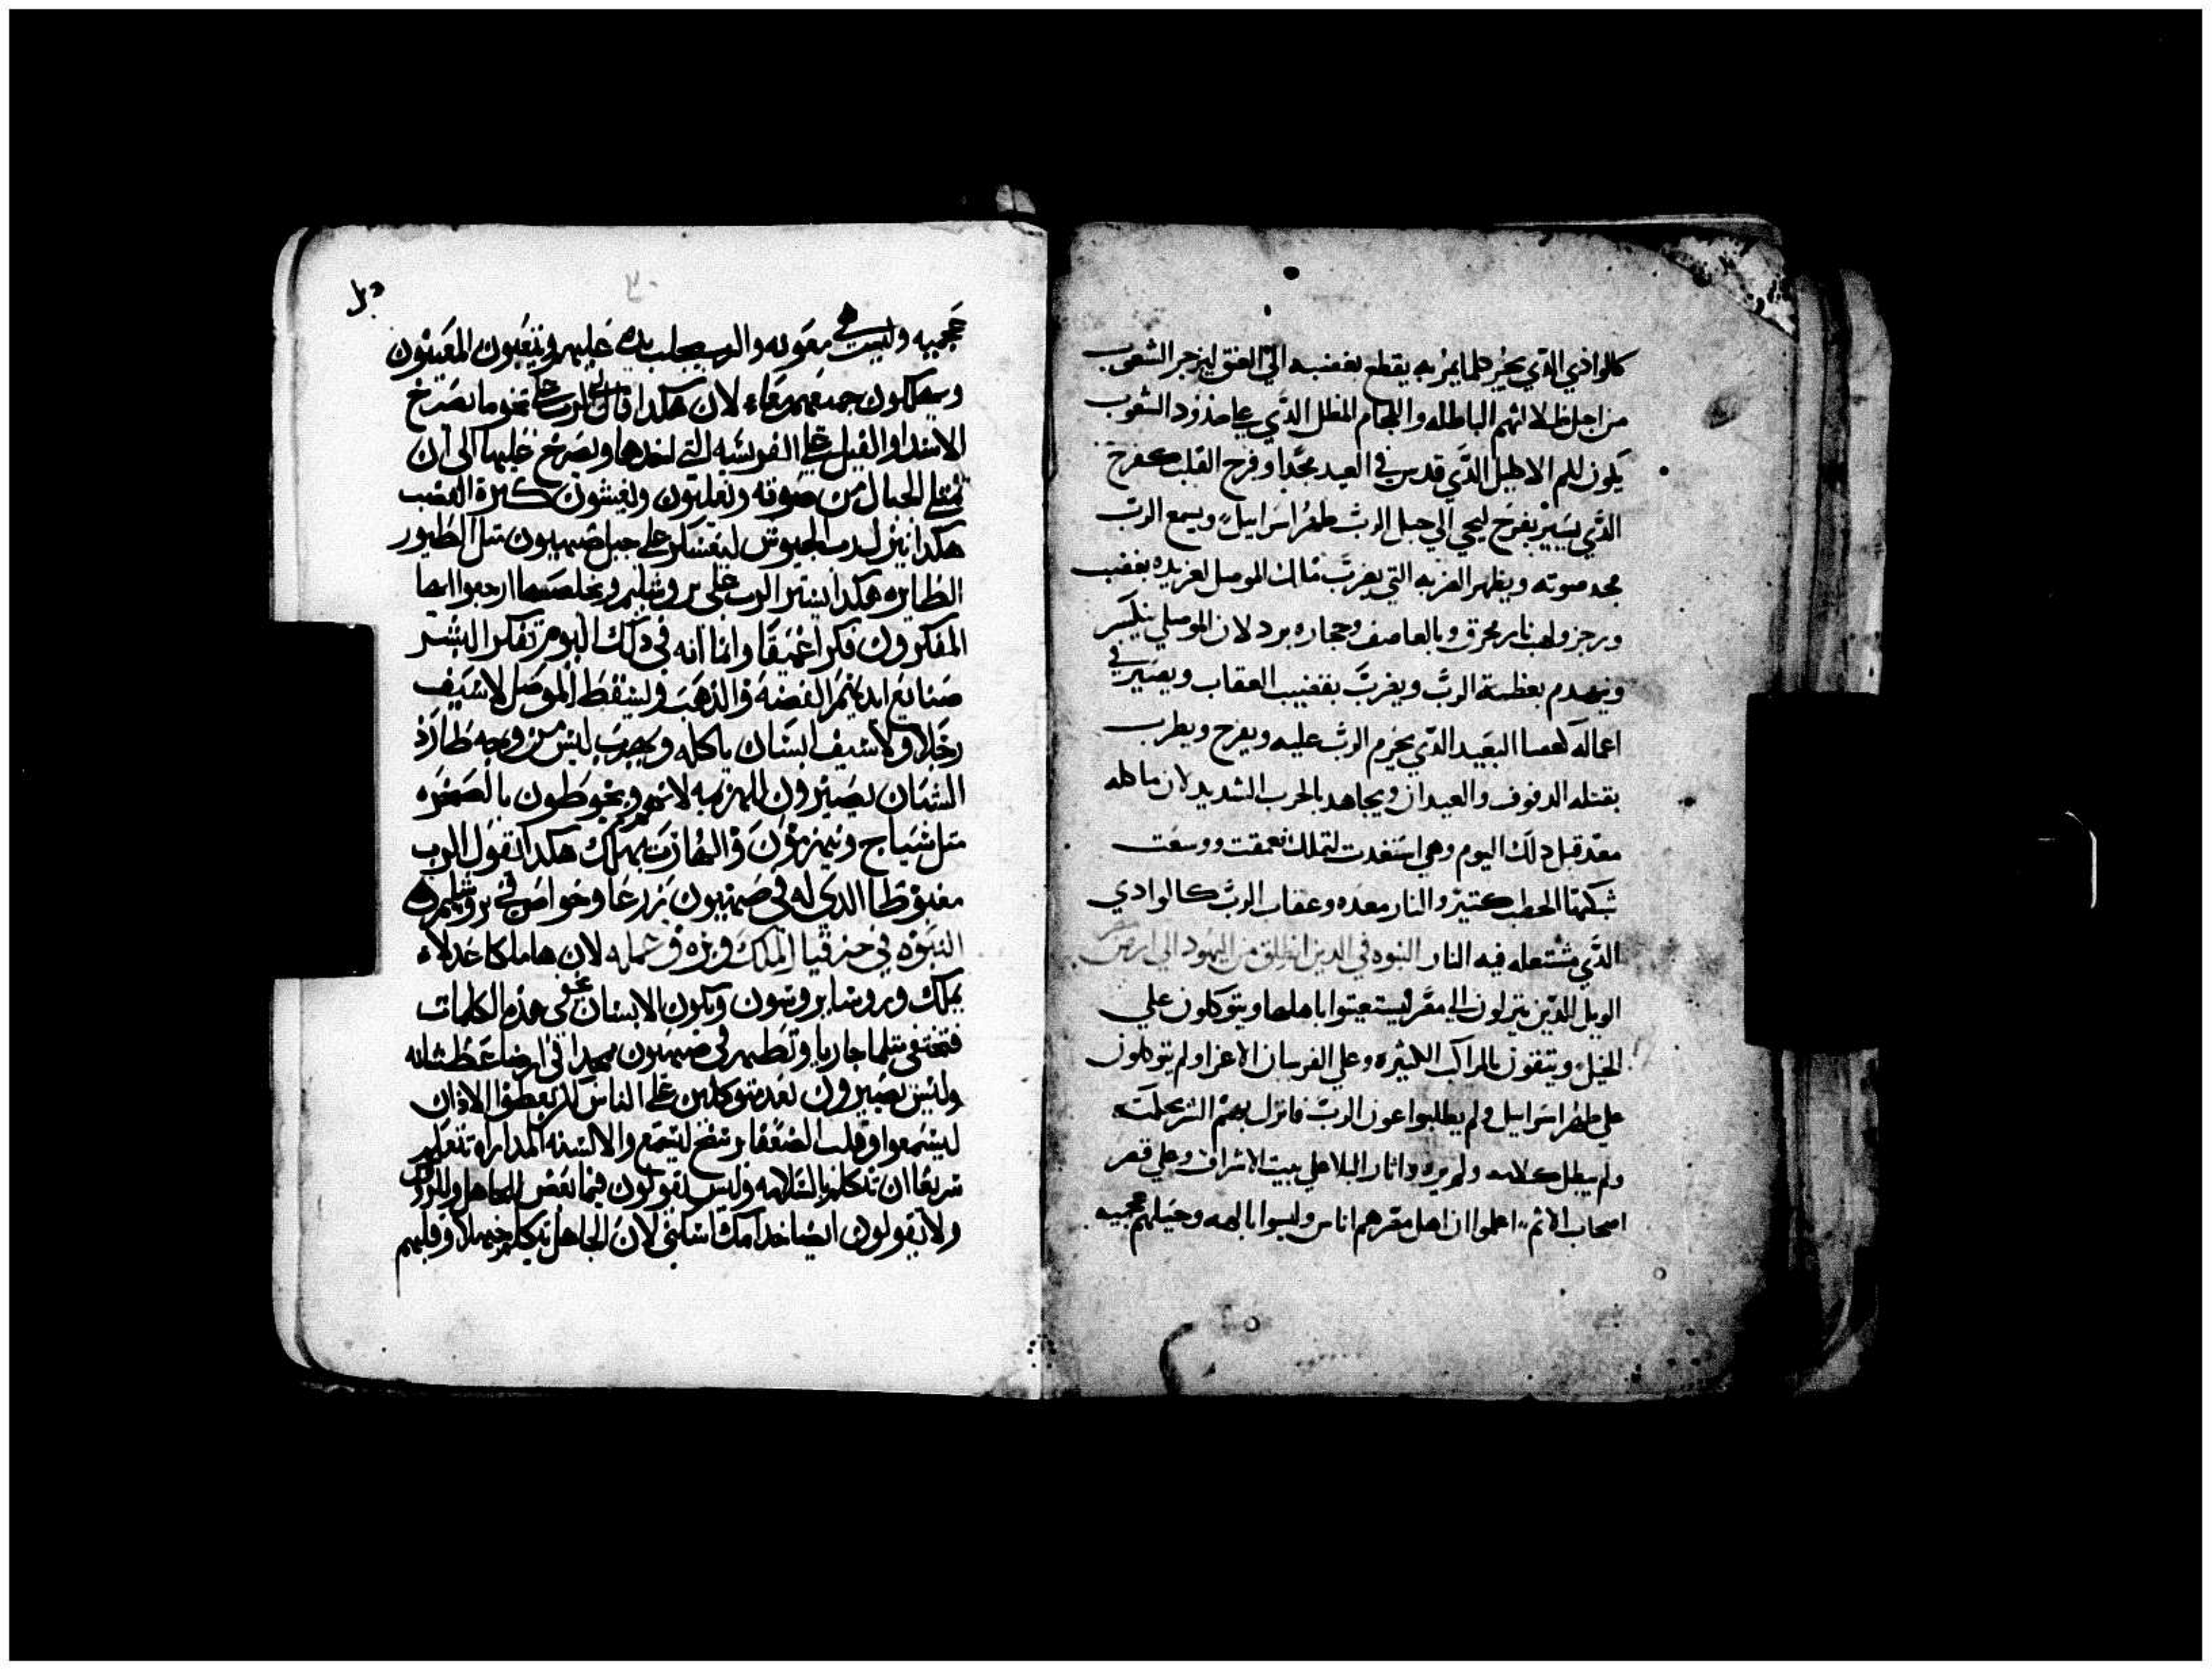 كالوادي الذي يخير حلما يمر به يقطع بغضبه الي العنق ليزجر الشعوب
من اجل ظلالاتهم الباطله واللجام المظلل الذي علي خدود الشعوب
يكون لكم الاكليل الذي قدس في العيد مجدا وفرح القلب كفرح
الذي يسير بفرح ليجي الي جبل الرب طهر اسراييل ويسمع الرب
مجد صوته ويظهر الضربه التي يضرب مالك الموصل لعز يده بغضب
ورجز ولهب نار محرق وبالعاصف وحجاره برد لان الموصلي ينكسر
وينهدم بعظمة الرب ويضرب بقضيب العقاب ويصير في
اعماله كعصا العبيد الذي يحزم الرب عليه ويفرح ويطرب
بقتله الدفوف والعيدان ويجاهد بالحرب الشديد لان ماكله
معد قبل دلك اليوم وهي استعدت لتملك فعمقت ووسعت
شبكتها الحطب كتير والنار معده وعقاب الرب كالوادي
الذي مشتعله فيه النار النبوه في الدين انطلق من اليهود الي ارض مصر
الويل للدين ينزلون الي مصر ليستعينوا باهلها ويتوكلون علي
الخيل ويتقون بالمراكب الكثيره وعلي الفرسان الاعزا ولم يتوكلون
علي طهر اسراييل ولم يطلبوا عون الرب فانزل بهم الشر بحكمته
ولم يبطل كلامه ولم يرده واثار البلا علي بيت الاشراف وعلي قصر
اصحاب الاثم اعلموا ان اهل مصر هم اناس وليسوا بالهه وخيلهم عجيبه
٣٠
عجيبه وليست هي معونه والرب يجلب يده عليهم ويتعبون المعينون
ويهلكون جميعهم معا لان هكدا قال لي الرب نحو ما يصرخ
الاسد او الفيل علي الفريسه التي اخدها ويصرخ عليها الي ان
تمتلي الجبال من صوته ويغلبون ويغيشون كترة الغضب
هكدا ينزل رب الجيوش ليعسكر علي جبل صهيون متل الطيور
الطايره هكدا يستر الرب علي يروشليم ويخلصها ارجعوا ايها
المفكرون فكرا عميقا وانما انه في دلك اليوم تفكر البشر
صنايع ايديهم الفضه والذهب وليسقط الموصل لا سيف
رجلا ولا سيف انسان ياكله ويهرب ليس من وجه طارد
الشبان يصيرون للهزيمه لانهم ويحوطون بالصخره
متل سياج وينهزمون والهارب يهلك هكدا يقول الرب
مغبوطا الدي له في صهيون زرعا وخواص في يروشليم
النبوه في حزقيا الملك وبره وعمله لان ها ملكا عدلا
يملك وروسا يروسون ويكون الانسان يخفي هده الكلمات
فتختفي متلما جاريا وتطهر في صهيون مجدا في ارضا عطشانه
وليس يصيرون بعد متوكلين علي الناس لكن يعطوا الاذان
ليسمعوا وقلب الضعفا يرسخ ليسمع والالسنه تتعلم
سريعا ان تتكلم بالسلامه وليس يقولون فيما بعض للجاهل
ولا يقولون ايضا خدامك اسكتي لان الجاهل يتكلم جهلا وقلبهم